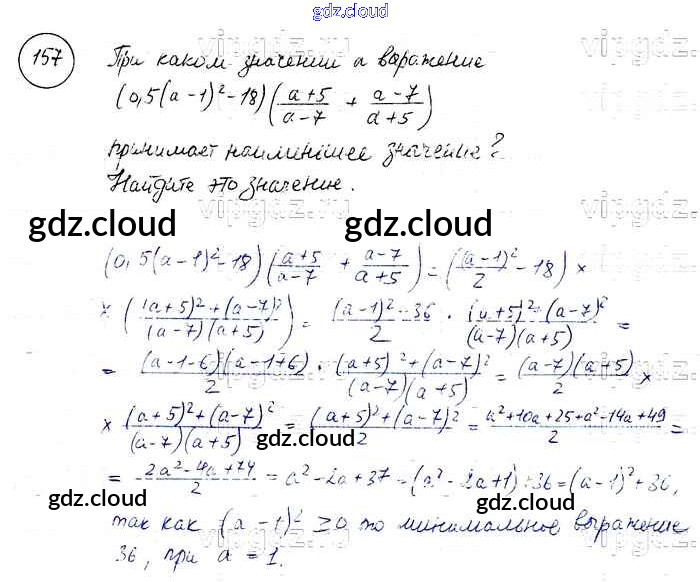 gdz.cloud
157
При каком значении а выражение
(0,5(a-1)²-18)((a+5)/(a-7) + (a-7)/(a+5))
принимает наименьшее значение?
Найдите это значение.
gdz.cloud gdz.cloud
(0,5(a-1)²-18)((a+5)/(a-7) + (a-7)/(a+5)) = ((a-1)²/2 - 18) ×
× (((a+5)²+(a-7)²)/((a-7)(a+5))) = ((a-1)²-36)/2 · ((a+5)²+(a-7)²)/((a-7)(a+5)) =
= ((a-1-6)(a-1+6))/2 · ((a+5)²+(a-7)²)/((a-7)(a+5)) = ((a-7)(a+5))/2 ×
× ((a+5)²+(a-7)²)/((a-7)(a+5)) = ((a+5)²+(a-7)²)/2 = (a²+10a+25+a²-14a+49)/2 =
gdz.cloud gdz.cloud
= (2a²-4a+74)/2 = a²-2a+37 = (a²-2a+1)+36 = (a-1)²+36,
gdz.cloud gdz.cloud
так как (a-1)² ≥0 то минимальное выражение
36, при a=1.
gdz.cloud